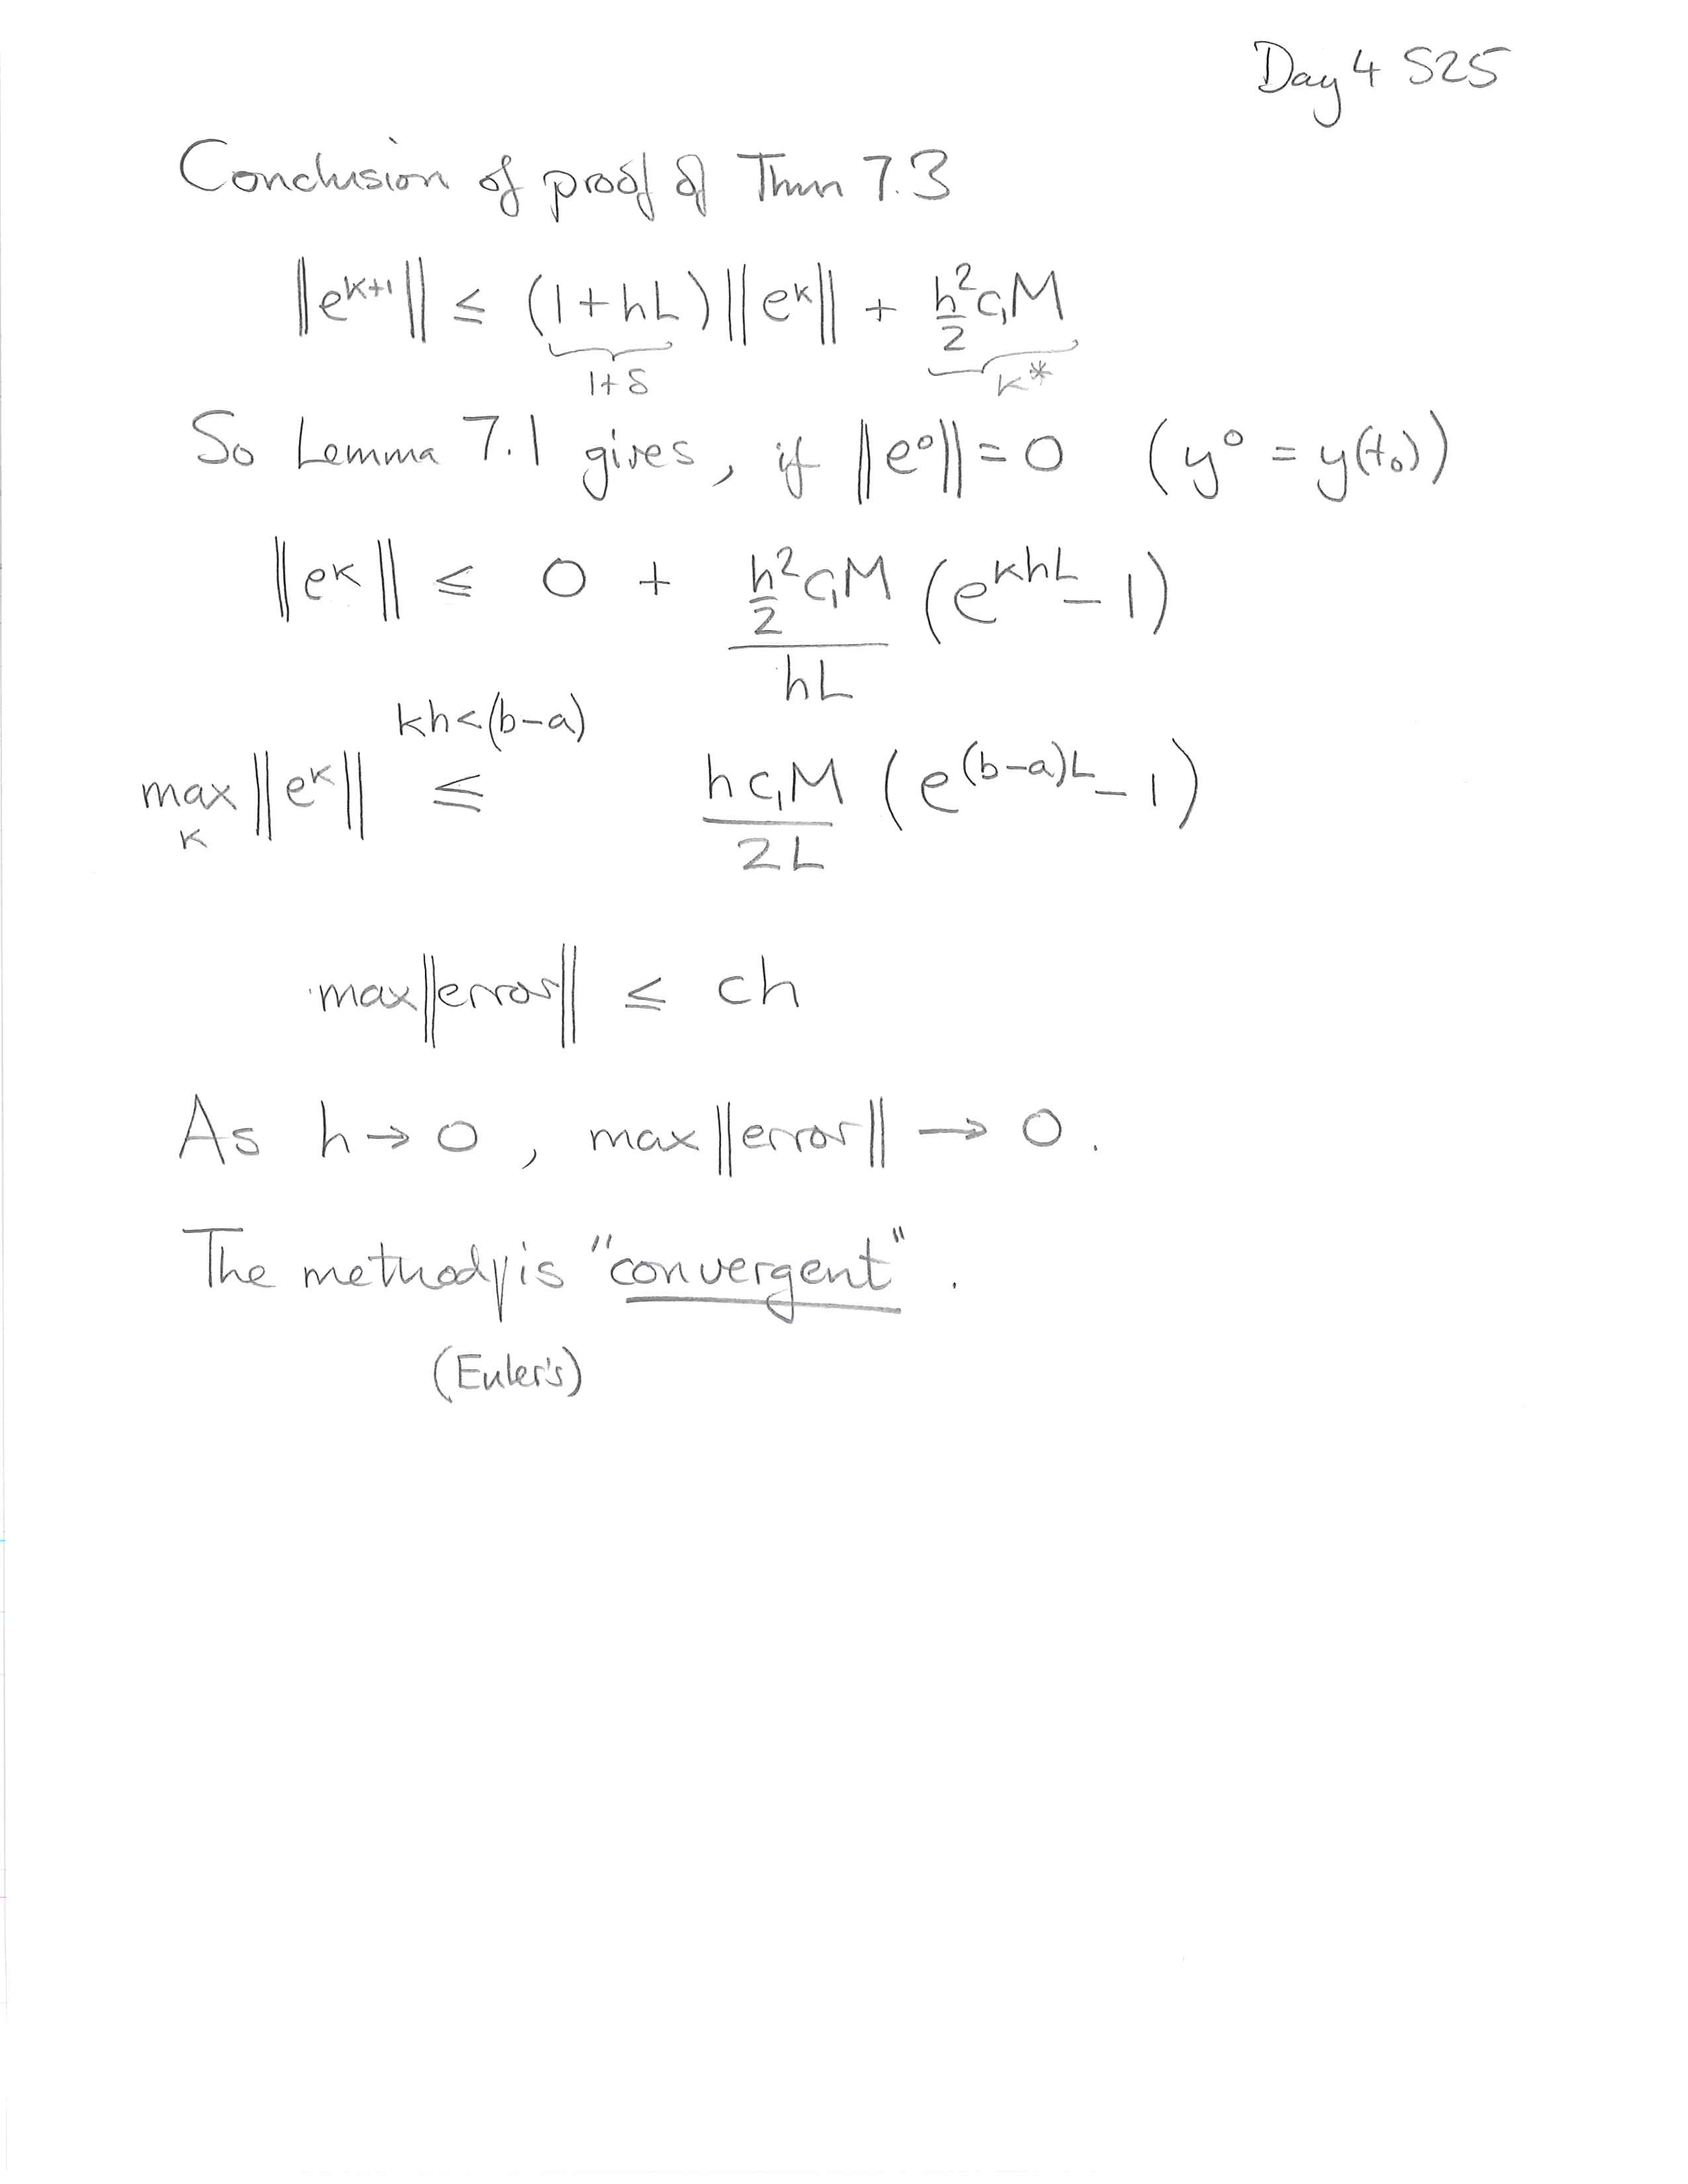 Day 4 S25
Conclusion of proof of Thm 7.3
‖e^{k+1}‖ ≤ (1+hL)‖e^k‖ + h²/2 c₁M
1+δ K*
So Lemma 7.1 gives, if ‖e⁰‖ = 0 (y⁰ = y(t₀))
‖e^k‖ ≤ 0 + (h²/2 c₁M)/(hL) (e^{khL} − 1)
kh<(b−a)
max_k ‖e^k‖ ≤ hc₁M/2L (e^{(b−a)L} − 1)
max‖error‖ ≤ ch
As h → 0, max‖error‖ → 0.
The method is "convergent".
(Euler's)